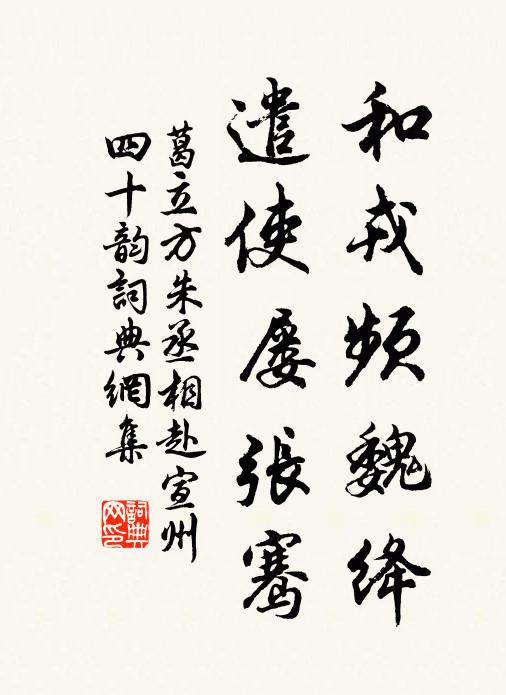 和戎頻魏絳
遣使屡張騫
葛立方朱丞相赴宣州
四十韵詞典網集
詞典网印